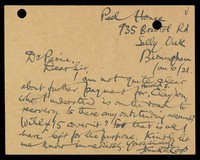 Peel House
935 Bristol Rd
Selly Oak
Birmingham
Jan 6/21
Dear Sir,
I am not quite
about further payment for
who I understand is on the road to
recovery. Is there any outstanding account
Will £5 cover it? for that is all I
have left for the purpose. Kindly let
me know immediately. Yours sincerely